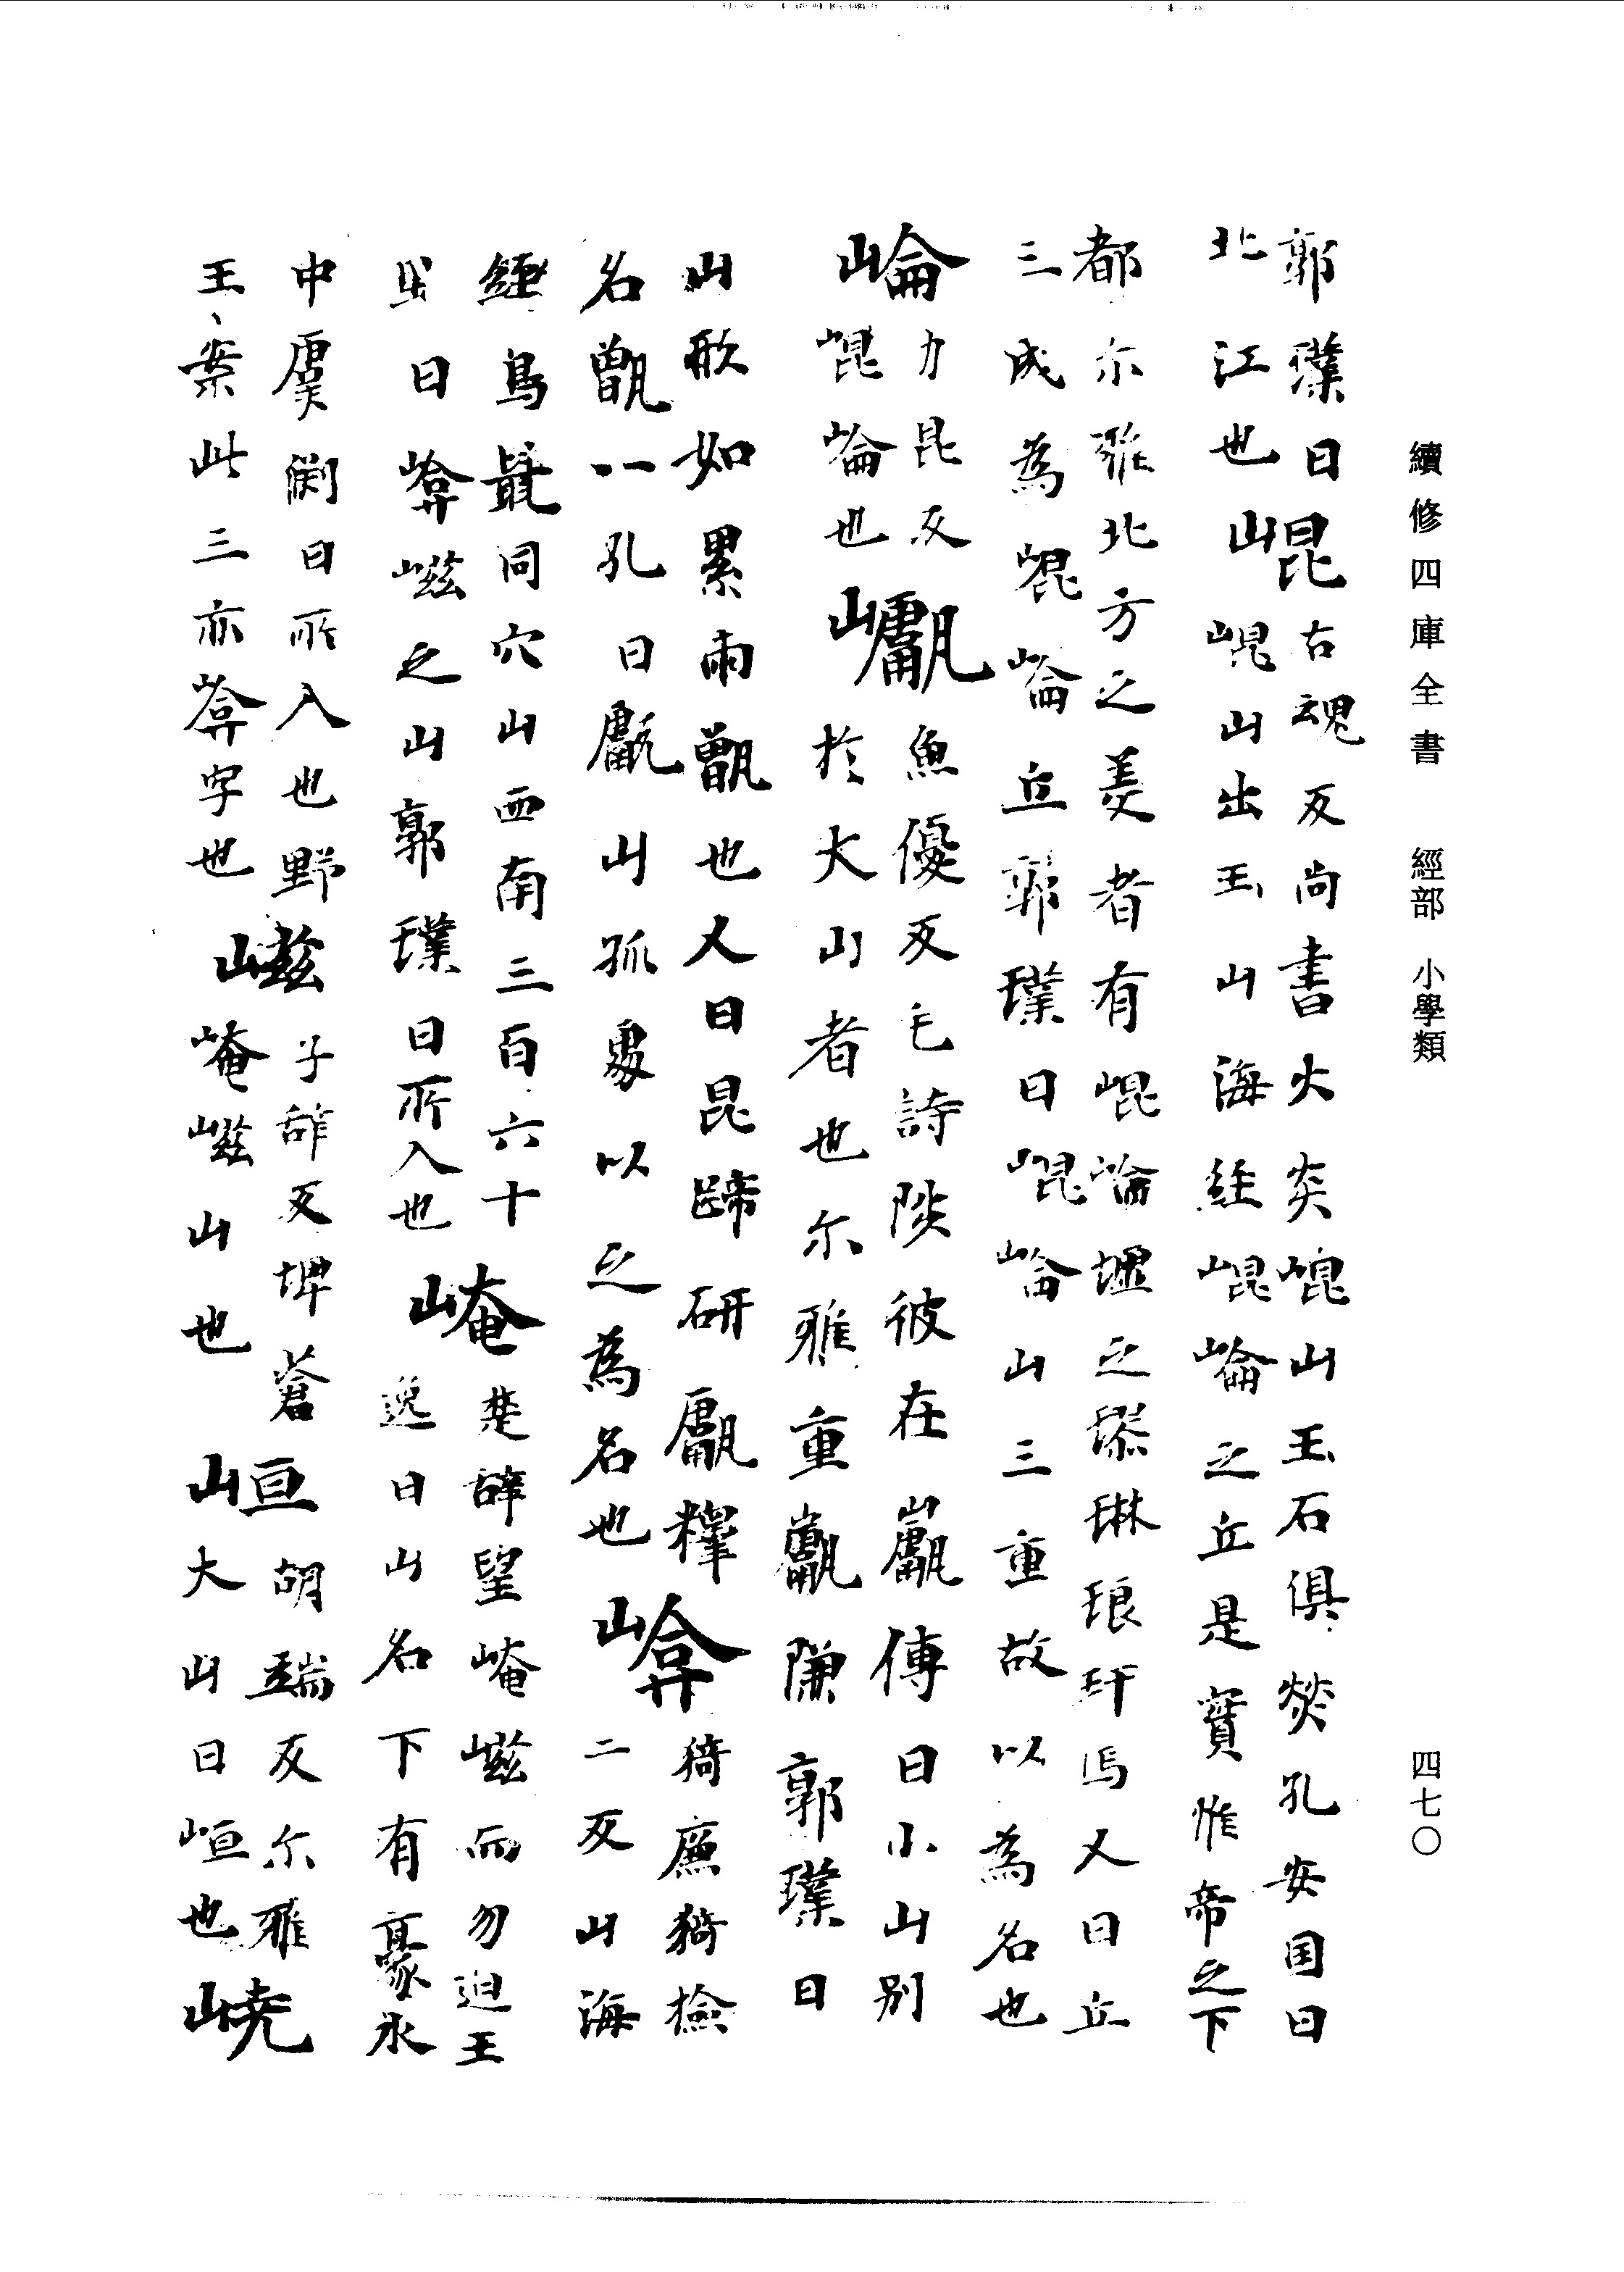 續修四庫全書 經部 小學類
四七〇
郭璞曰
北江也
崐
古魂反尚書火炎崐山玉石俱燓孔安国曰
崐山出玉山海經崐崘之丘是實惟帝之下
都尔雅北方之美者有崐崘墟之璆琳琅玕焉又曰丘
三成為崐崘丘郭璞曰崐崘山三重故以為名也
崘
力昆反
崐崘也
甗
魚優反毛詩陟彼在巘傳曰小山別
於大山者也尔雅重甗隒郭璞曰
山形如累兩甑也又曰昆蹄研甗釋
名甑一孔曰甗山孤處以之為名也
崦
猗廉猗撿
二反山海
經鳥鼠同穴山西南三百六十
里曰崦嵫之山郭璞曰所入也
崦
楚辞望崦嵫而勿迫王
逸曰山名下有豪水
中虞渕曰所入也野
王案此三亦崦字也
嵫
子辞反埤蒼
崦嵫山也
峘
胡端反尔雅
大山曰峘也
嶢